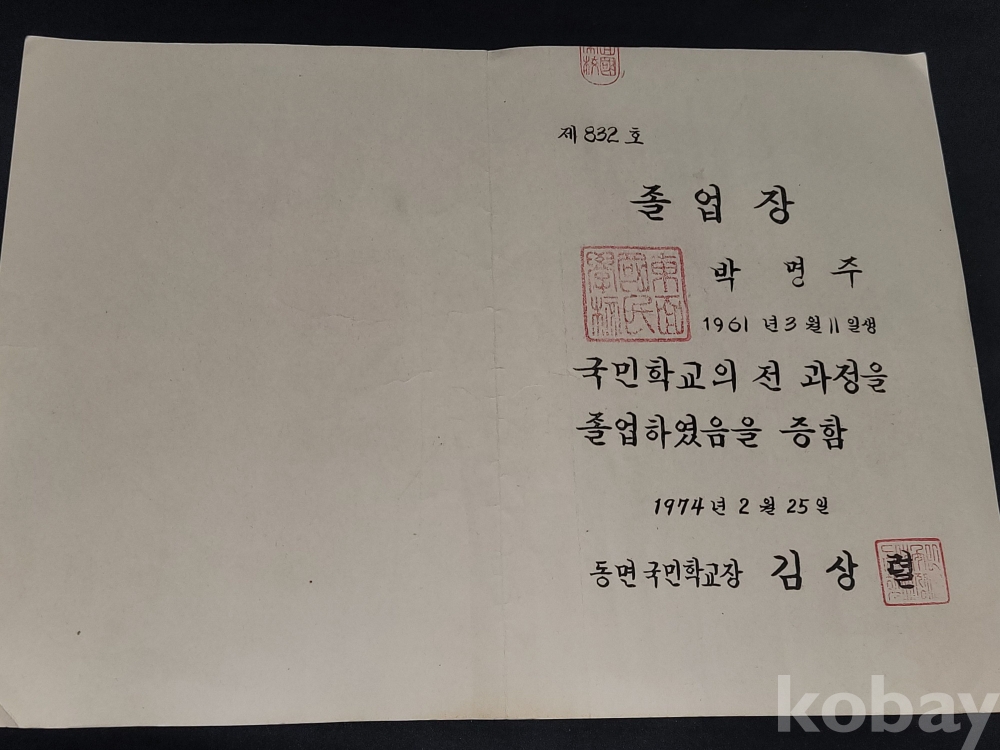 제 832 호
졸업장
東面國民學校
박 명 주
1961 년 3 월 11 일생
국민학교의 전 과정을
졸업하였음을 증함
1974 년 2 월 25 일
동면국민학교장 김 상 렬
kobay